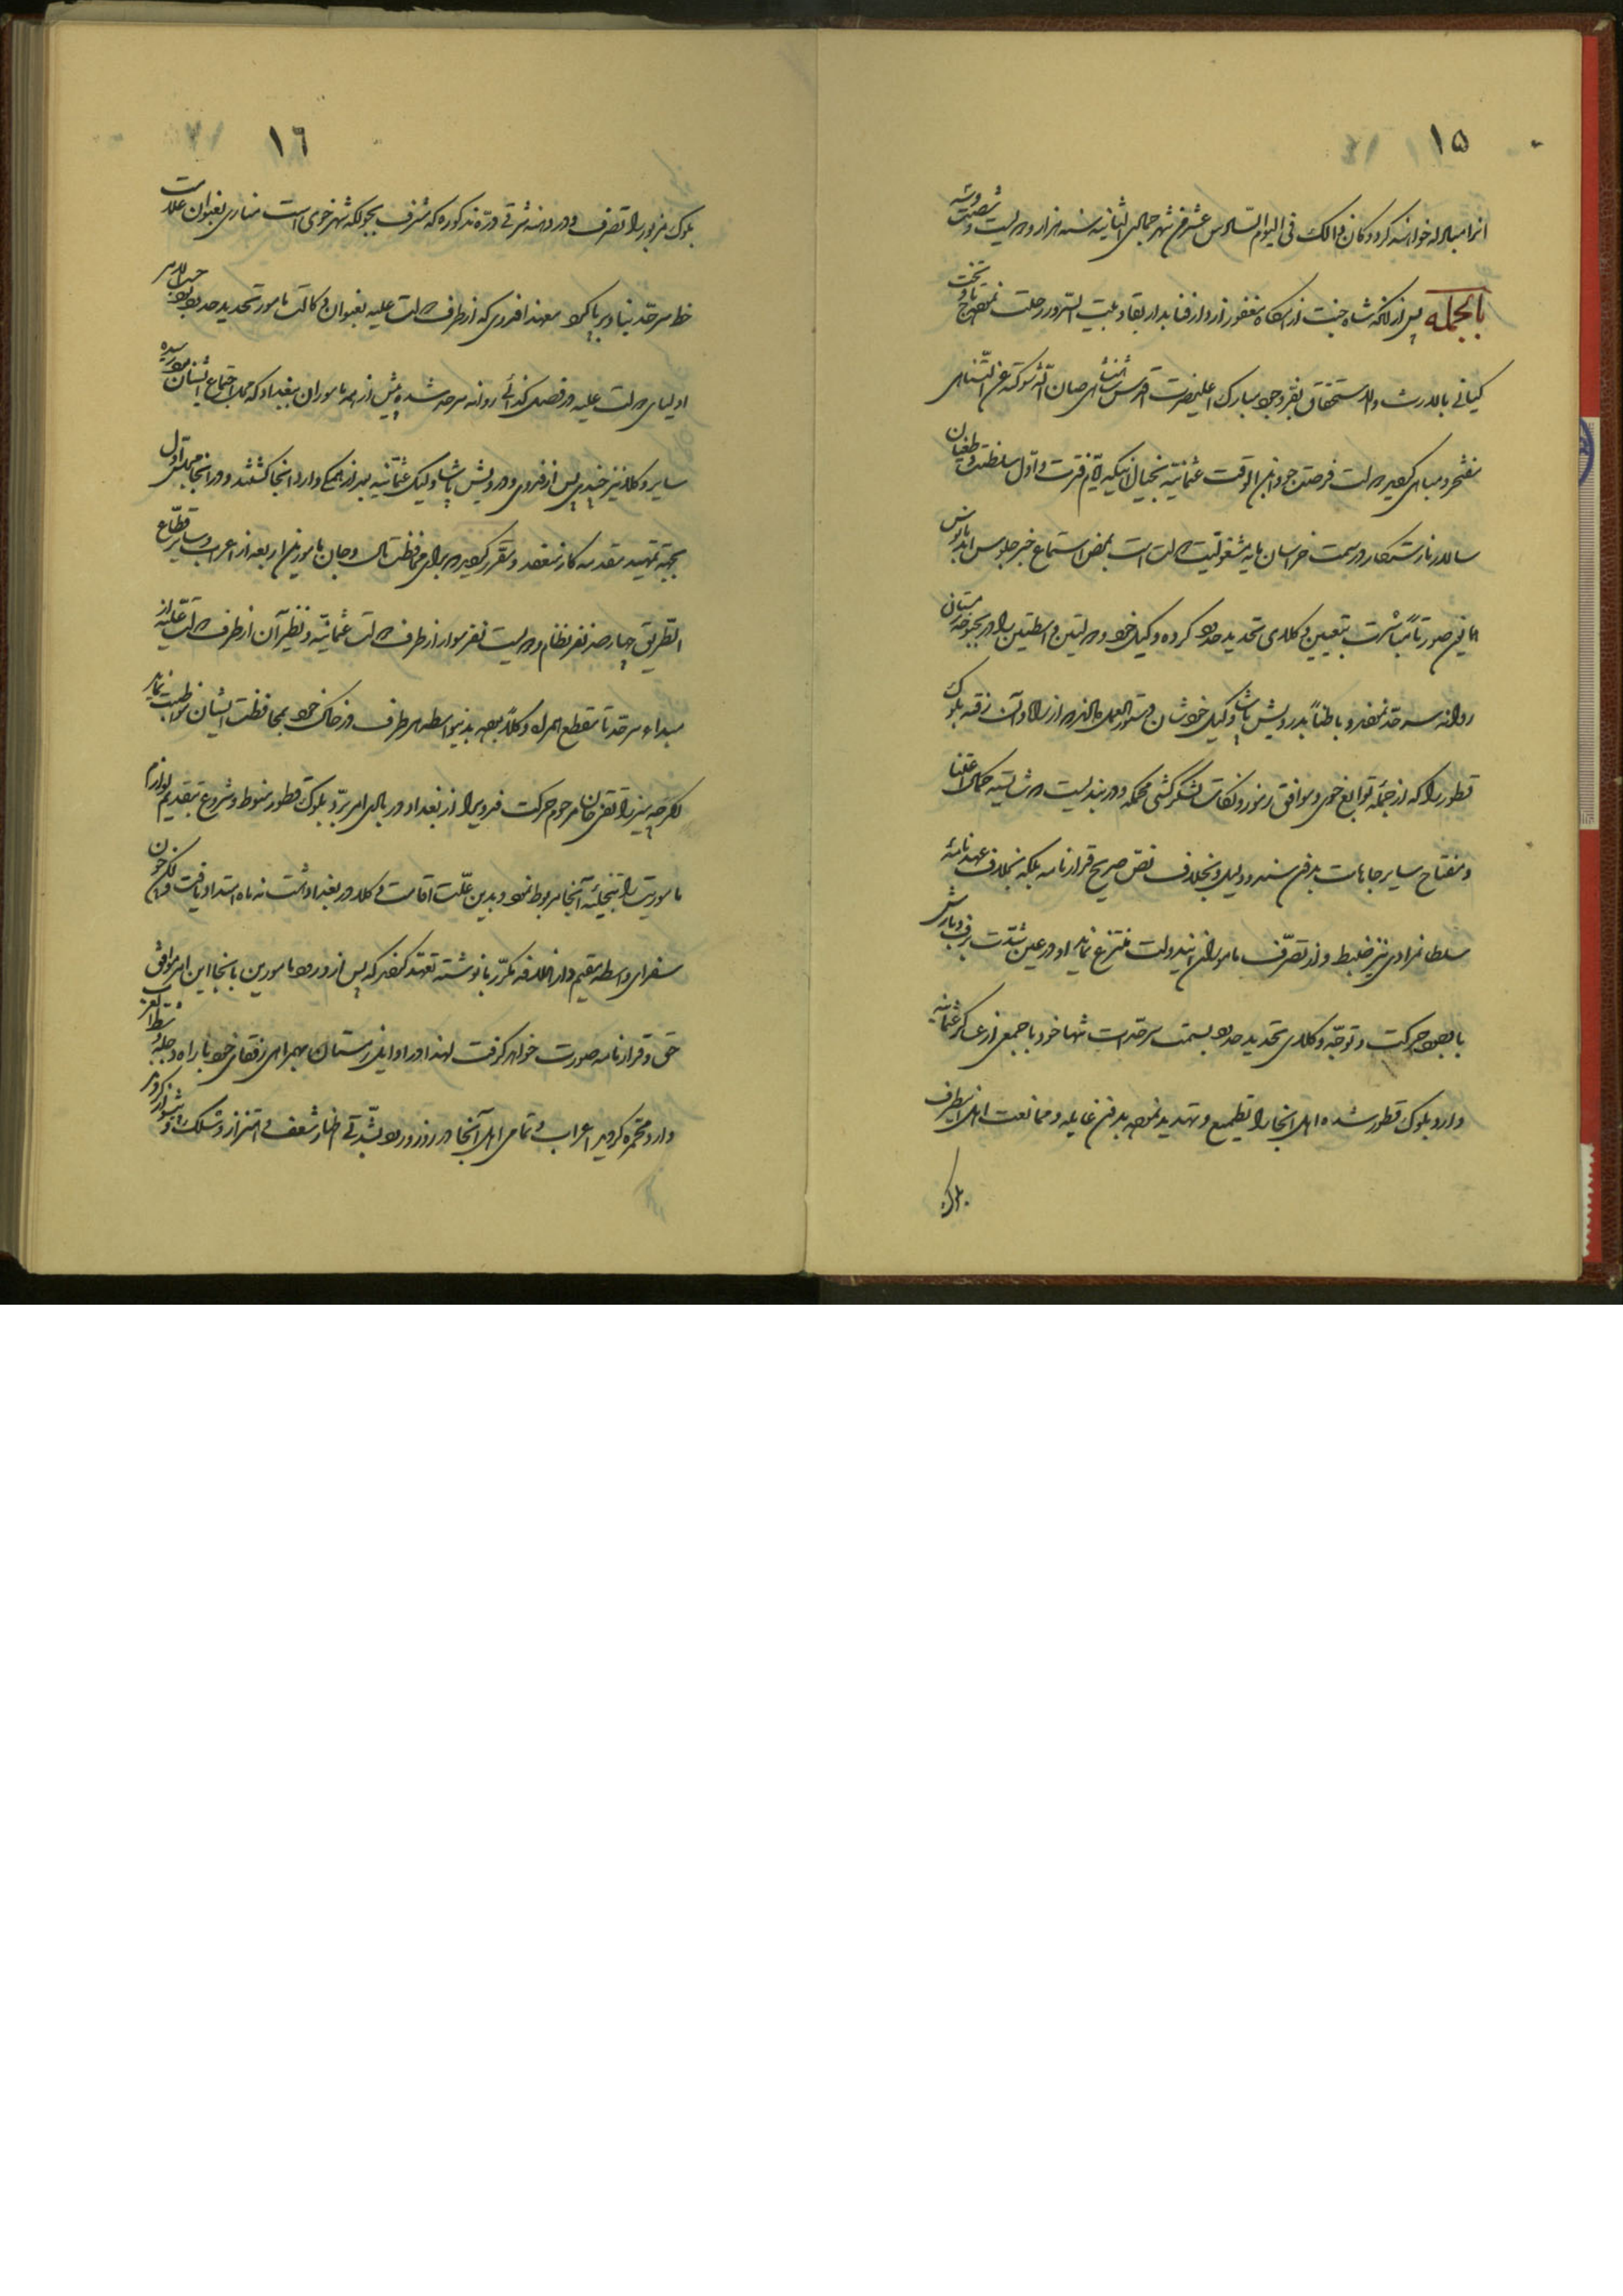 ۱۵
انرا مبادله خواهند کرد و کان ذالک فی الیوم السادس عشر من شهر جمادی الثانیه سنه هزار و دویست و شصت و سه
بالجمله پس از آنکه شاه جنت آرامگاه مغفور از دار فنا بدار بقا و بیت السرور رحلت نمود تاج و تخت
کیانی بالارث و الاستحقاق بفر وجود مبارک اعلیحضرت اقدس شاهنشاهی صان الله شوکته عن التناهی
مفتخر و مباهی گردید دولت فرصت جو ابن الوقت عثمانیه بخیال اینکه ایام فترت و اول سلطنت و طغیان
سالار نابستکار در سمت خراسان مایه مشغولیت دولت است بمحض استماع خبر جلوس ابد مانوس
همایون صورتا مباشرت بتعیین وکلای تحدید حدود کرده وکیل خود و دولتین واسطتین را در بحبوحه زمستان
روانه سرحد نمودند و باطنا بدرویش پاشا وکیل خودشان دستورالعمل دادند که از راه وان رفته بلوک
قطور را که از جمله توابع خوی و موافق رموز و نکات لشکرکشی محکمه و دربندیست که شایسته کمال اعتنا
و مفتاح سایر جاهات بدون سند و دلیل و بخلاف نص صریح قرارنامه بلکه بخلاف عهدنامه
سلطان مرادی نیز ضبط و از تصرف ماموران ایندولت منتزع نماید او در عین شدت برف و بارش
با وجود حرکت و توجه وکلای تحدید حدود بسمت سرحدات تنها خود با جمعی از عساکر عثمانیه
وارد بلوک قطور شده اهل انجا را تطمیع و تهدید نموده بدون غایله و ممانعت اهل اینطرف
بلوک
۱٦
بلوک مزبور را تصرف و در دهنه شرقی دره مذکوره که مشرف بجولکه شهر خوی است مناری بعنوان علامت
خط سرحد بنا و برپا کرد معهذا فدوی که از طرف دولت علیه بعنوان وکالت مامور تحدید حدود بود حسب الامر
اولیای دولت علیه در فصل کذائی روانه سرحد شده پیش از همه ماموران ببغداد که محل اجتماع ایشان بود رسیده
سایر وکلا نیز چندی پس از فدوی و درویش پاشا وکیل عثمانیه بعد از همگی وارد انجا گشتند و در انجا مجلس اول
بجهة تمهید مقدمه کار منعقد و مقرر گردید که برای محافظت مال و جان مامورین اربعه از اعراب و سایر قطاع
الطریق چهارصد نفر نظام و دویست نفر سوار از طرف دولت عثمانیه و نظیر آن از طرف دولت علیه از
مبداء سرحد تا مقطع همراه وکلا بوده بدینواسطه هر طرف در خاک خود بمحافظت ایشان مواظبت نماید
اگرچه میرزا تقی خان مرحوم حرکت فدویرا از بغداد در باب امر برد بلوک قطور منوط و شروع بتقدیم لوازم
ماموریت را بتخلیه آنجا مربوط نمود و بدین علت اقامت وکلا در بغداد هشت نه ماه امتداد یافت ولکن چون
سفرای واسطه مقیم دار الخلافه مکرر با نوشته تعهد کردند که پس از ورود مامورین بانجا این امر موافق
حق و قرارنامه صورت خواهد گرفت لهذا در اوایل زمستان بهمراهی رفقای خود با راه دجله و شط العرب
وارد محمره گردید اعراب و تمامی اهل آنجا در روز ورود بشدتی اظهار شعف و اهتزاز و شلیک و شنلک کردند